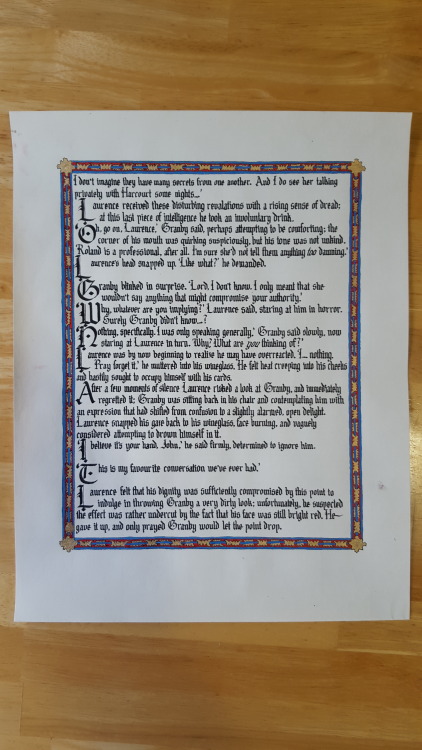 I don't imagine they have many secrets from one another. And I do see her talking
privately with Harcourt some nights...'
Laurence received these disturbing revelations with a rising sense of dread;
at this last piece of intelligence he took an involuntary drink.
'Oh, go on, Laurence,' Granby said, perhaps attempting to be comforting; the
corner of his mouth was quirking suspiciously, but his tone was not unkind.
'Roland is a professional, after all. I'm sure she'd not tell them anything too damning.'
Laurence's head snapped up. 'Like what?' he demanded.
Granby blinked in surprise. 'Lord, I don't know. I only meant that she
wouldn't say anything that might compromise your authority.'
'Why, whatever are you implying?' Laurence said, staring at him in horror.
Surely Granby didn't know...?
'Nothing, specifically. I was only speaking generally,' Granby said slowly, now
staring at Laurence in turn. 'Why? What are you thinking of?'
Laurence was by now beginning to realise he may have overreacted. 'I— nothing.
Pray forget it,' he muttered into his wineglass. He felt heat creeping into his cheeks
and hastily sought to occupy himself with his cards.
After a few moments of silence Laurence risked a look at Granby, and immediately
regretted it: Granby was sitting back in his chair and contemplating him with
an expression that had shifted from confusion to a slightly alarmed, open delight.
Laurence snapped his gaze back to his wineglass, face burning, and vaguely
considered attempting to drown himself in it.
'I believe it's your hand, John,' he said firmly, determined to ignore him.
'This is my favourite conversation we've ever had.'
Laurence felt that his dignity was sufficiently compromised by this point to
indulge in throwing Granby a very dirty look; unfortunately, he suspected
the effect was rather undercut by the fact that his face was still bright red. He
gave it up, and only prayed Granby would let the point drop.